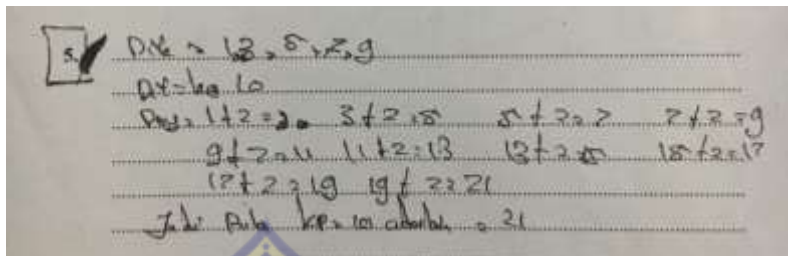 5. Dik = 1,3, 5, 7, 9
Dit = ke 10
Peny = 1+2=3. 3+2=5 5+2=7 7+2=9
9+2=11 11+2=13 13+2=15 15+2=17
17+2=19 19+2=21
Jadi Pola ke 10 adalah = 21